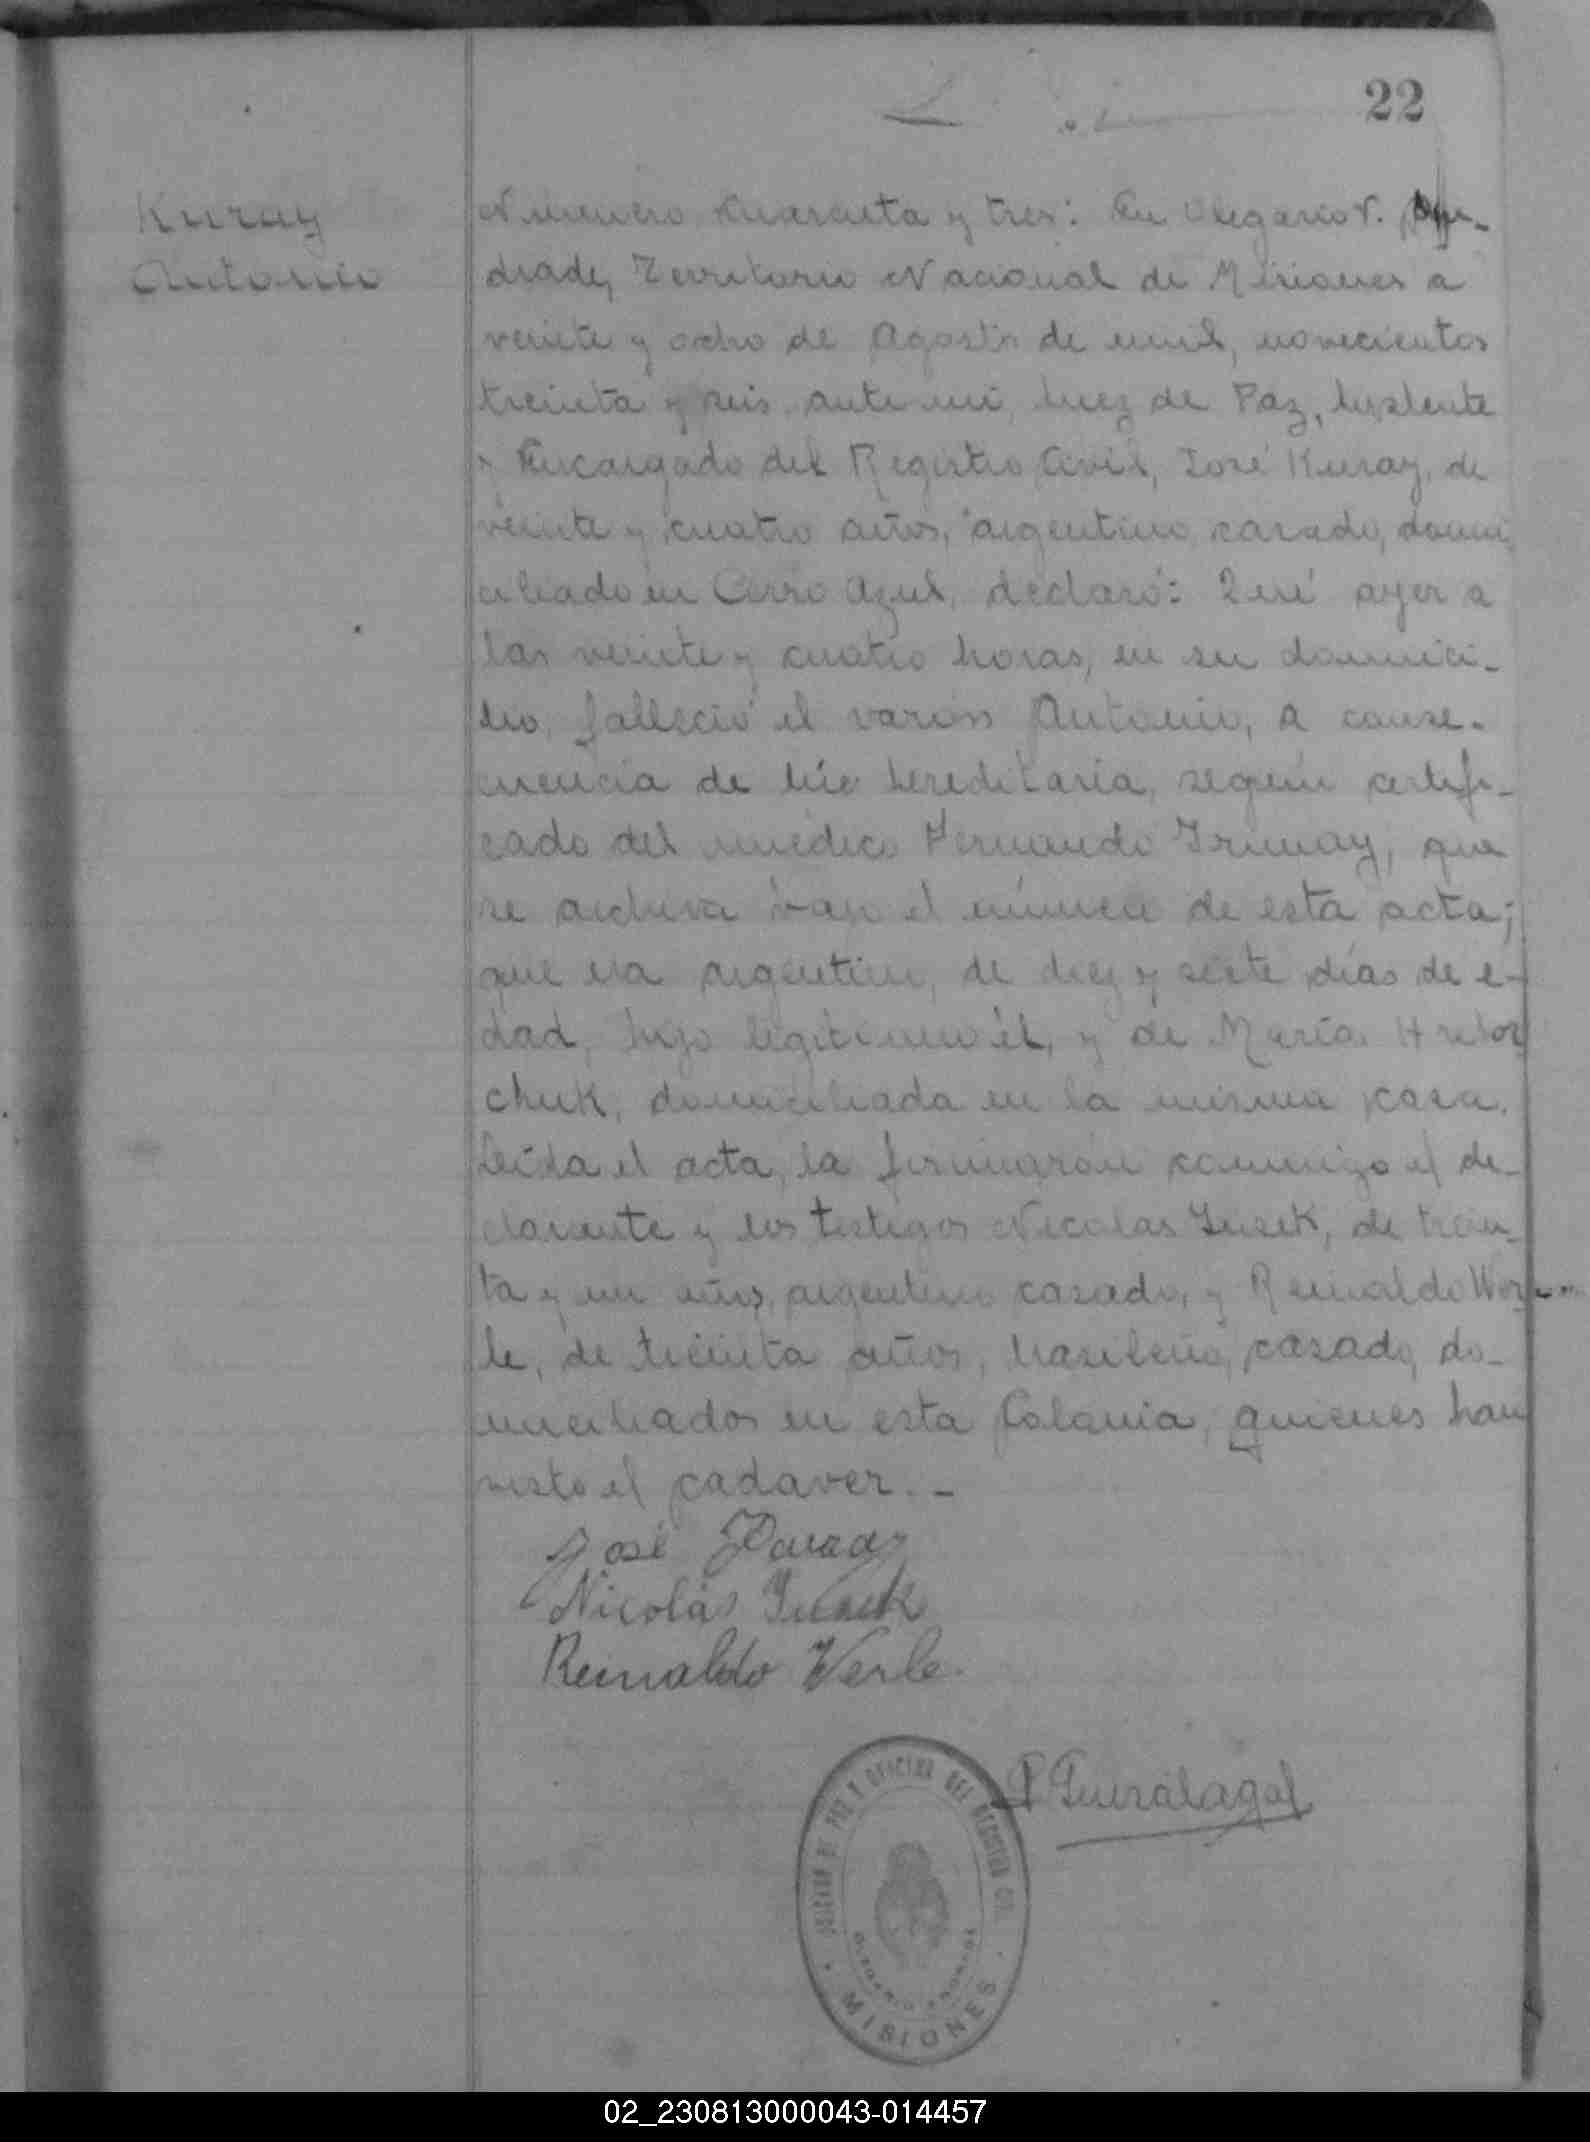 22
Kuray
Antonio
Numero Cuarenta y tres: En Olegario V. An-
drade, Territorio Nacional de Misiones a
veinte y ocho de Agosto de mil, novecientos
treinta y seis, ante mi, Juez de Paz, Suplente
y Encargado del Registro Civil, José Kuray, de
veinte y cuatro años, argentino, casado, domi
ciliado en Cerro Azul, declaró: Qué ayer a
las veinte y cuatro horas, en su domici-
lio, falleció el varón Antonio, a conse-
cuencia de lúe hereditaria, según certifi-
cado del médico Fernando, que
se archiva bajo el número de esta acta;
que era argentino, de diez y siete días de e-
dad, hijo legítimo él, y de María
chuk, domiciliada en la misma casa.
Leída el acta, la firmaron conmigo el de-
clarante y los testigos Nicolas, de trein-
ta y un años, argentino casado, y Reinaldo Wer
le, de treinta años, brasileño, casado, do-
miciliados en esta Colonia, quienes han
visto el cadaver. -
José Kuray
Nicolás
Reinaldo Werle.
JUZGADO DE PAZ Y OFICINA DEL REGISTRO CIVIL
OLEGARIO ANDRADE
MISIONES
02_230813000043-014457